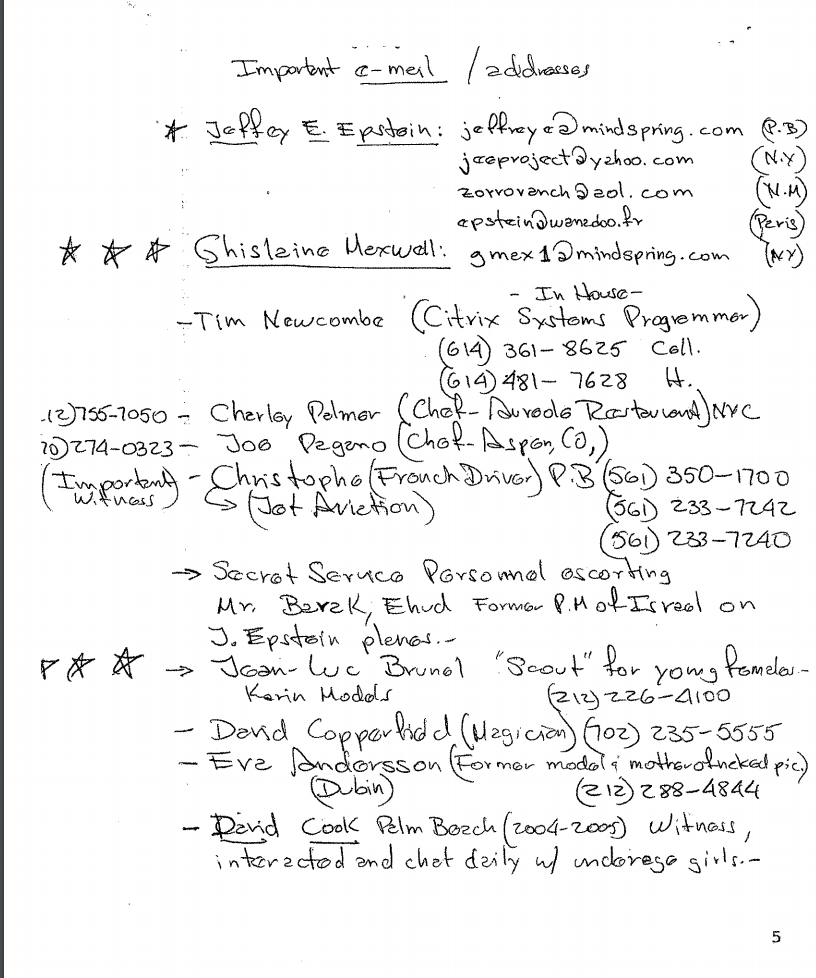 Important e-mail / addresses
Jeffey E. Epstein: jeffreye@mindspring.com (P.B)
jeeproject@yahoo.com (N.Y)
zorroranch@aol.com (N.M)
epstein@wanadoo.fr (Paris)
Ghislaine Maxwell: gmax1@mindspring.com (NY)
- In House -
- Tim Newcombe (Citrix Systems Programmer)
(614) 361-8625 Cell.
(614) 481-7628 H.
12)755-7050 - Charley Palmer (Chef- Aureole Restaurant) NYC
70)274-0323 - Joe Pagano (Chef- Aspen, CO,)
(Important Witness) - Christophe (French Driver) P.B (561) 350-1700
↳ (Jet Aviation) (561) 233-7242
(561) 233-7240
→ Secret Service Personnal escorting
Mr. Barak, Ehud Former P.M of Israel on
J. Epstein planes.-
→ Jean-Luc Brunel "Scout" for young females-
Karin Models (212) 226-4100
- David Copperfield (Magician) (702) 235-5555
- Eva Andersson (Former model & mother of naked pic.)
(Dubin) (212) 288-4844
- David Cook Palm Beach (2004-2005) Witness,
interacted and chat daily w/ underage girls.-
5